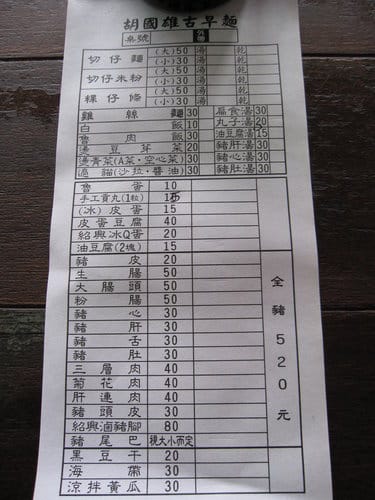 胡國雄古早麵
桌號 外帶
切仔麵 (大)50 湯 乾
(小)30 湯 乾
切仔米粉 (大)50 湯 乾
(小)30 湯 乾
粿仔條 (大)50 湯 乾
(小)30 湯 乾
雞絲麵 30 扁食湯 30
白飯 10 丸子湯 20
魯肉飯 30 油豆腐湯 15
燙豆芽菜 20 豬肝湯 30
燙青菜(A菜·空心菜) 30 豬心湯 30
(沙拉·醬油) 30 豬肚湯 30
魯蛋 10
手工貢丸(1粒)
(冰)皮蛋 15
皮蛋豆腐 40
紹興冰Q蛋 20
油豆腐(2塊) 15
豬皮 20
生腸 50
大腸頭 50
粉腸 50
豬心 30
豬肝 30
豬舌 30
豬肚 30
三層肉 40
菊花肉 40
肝連肉 40
豬頭皮 30
紹興滷豬腳 80
豬尾巴 視大小而定
黑豆干 20
海帶 30
涼拌黃瓜 30
全豬520元